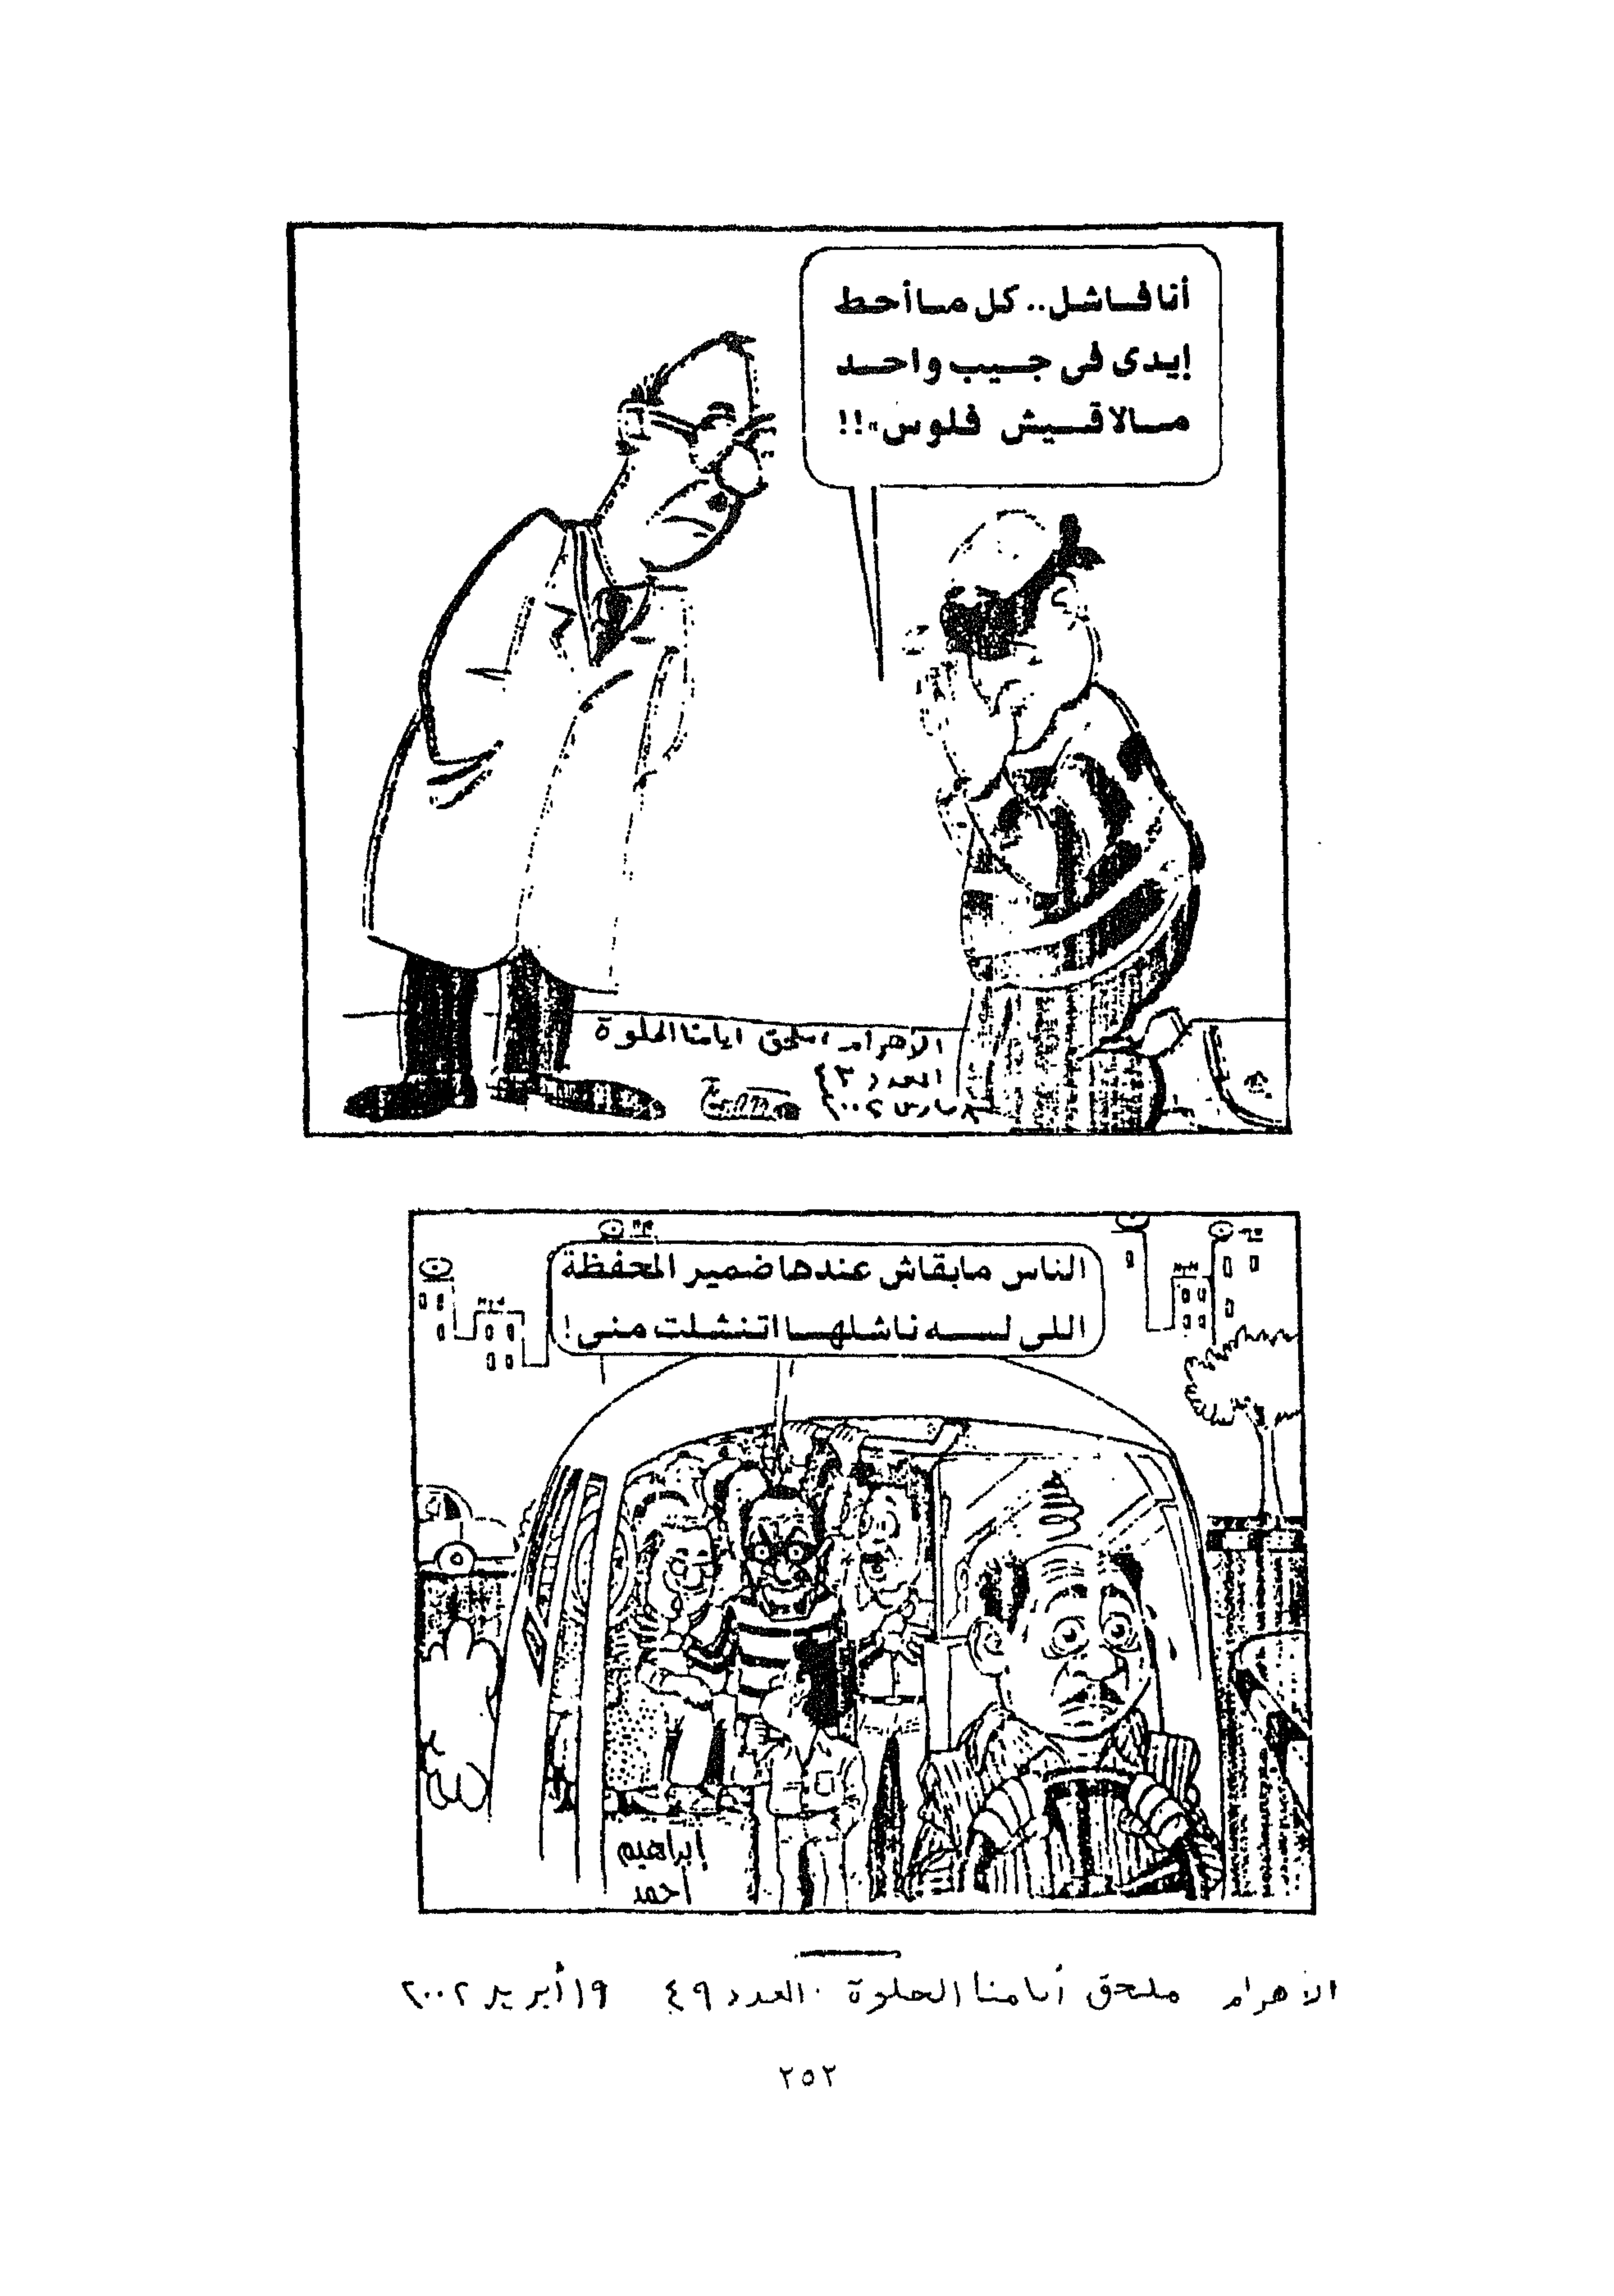 أنا فاشل.. كل ما أحط
إيدى فى جيب واحد
مالاقيش فلوس..!!
الأهرام، ملحق أيامنا الحلوة
العدد ٤٣
مارس ٢٠٠٢
الناس مابقاش عندها ضمير المحفظة
اللى لسه ناشلها اتنشلت منى!
إبراهيم
أحمد
الأهرام ملحق أيامنا الحلوة. العدد ٤٩ ١٩ أبريل ٢٠٠٢
٢٥٢